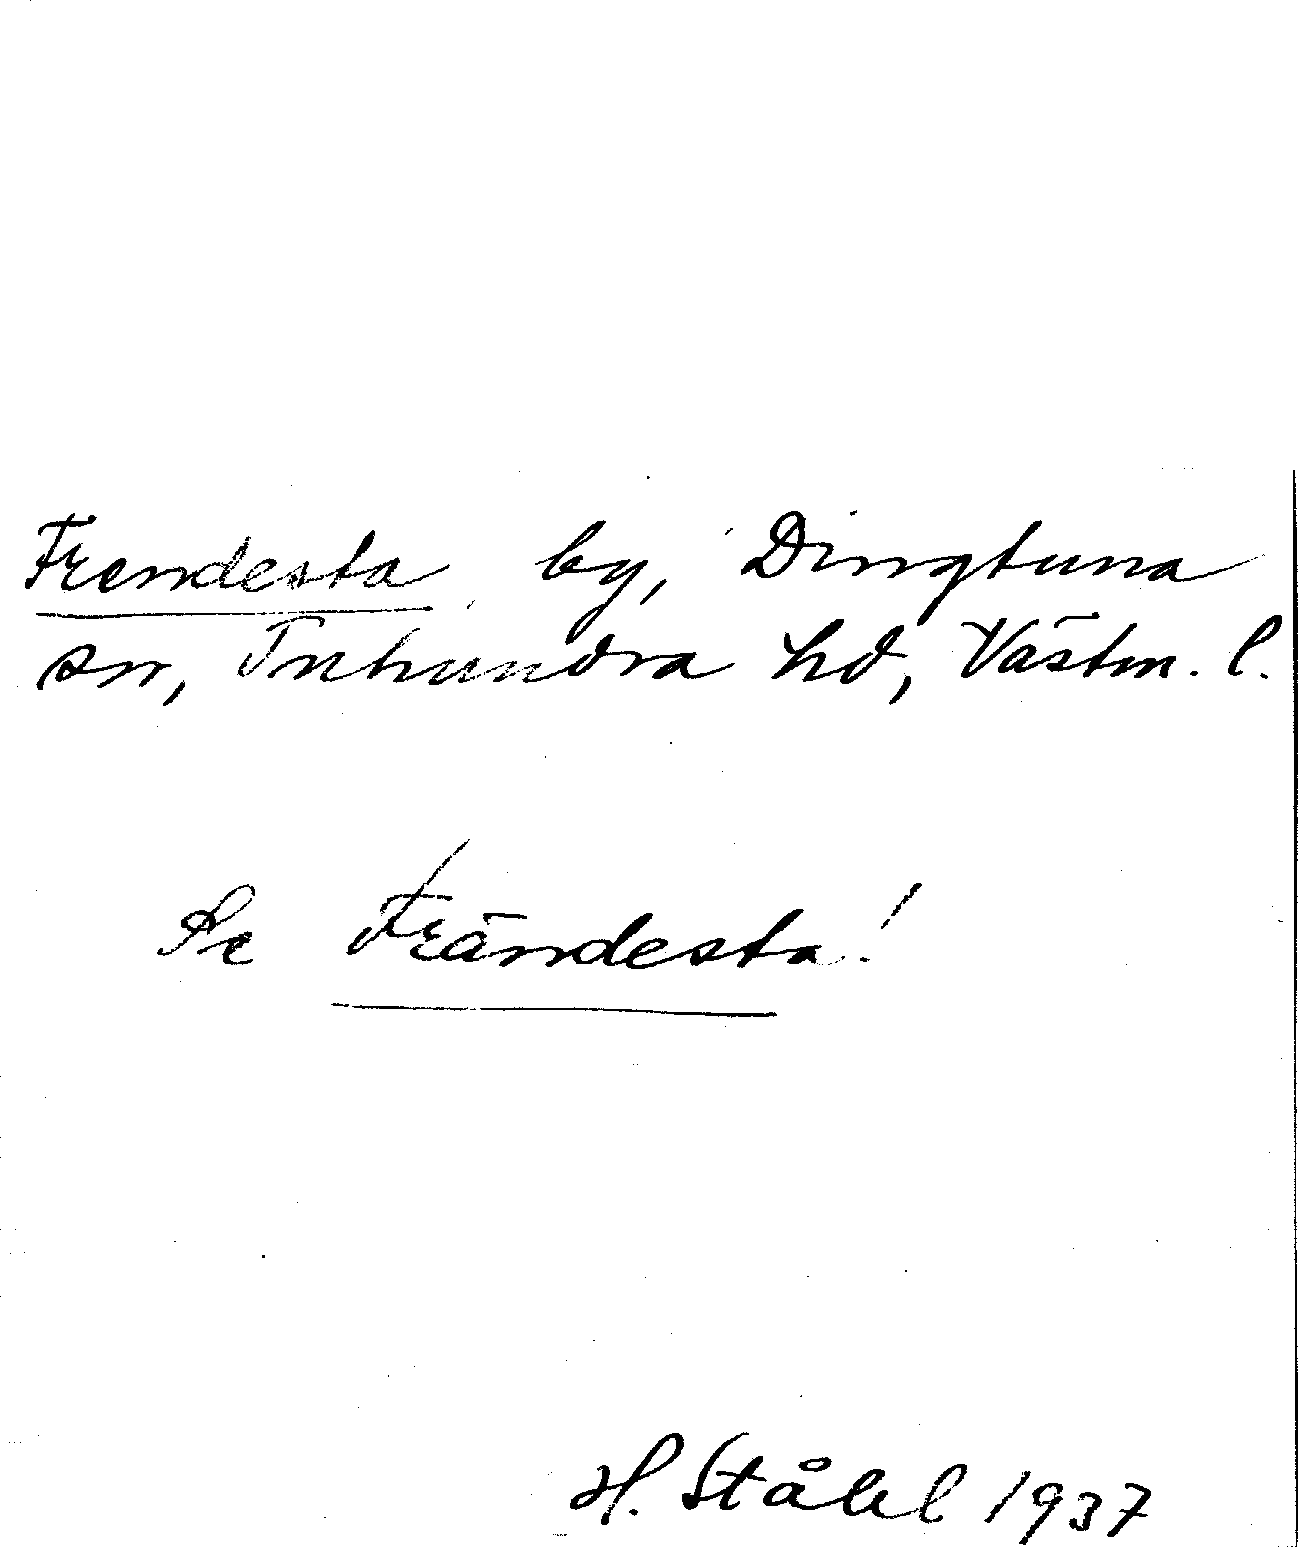 Frendesta by, Dingtuna
sn, Tuhundra hd, Västm. l.
Se Frändesta!
H. Ståhl 1937